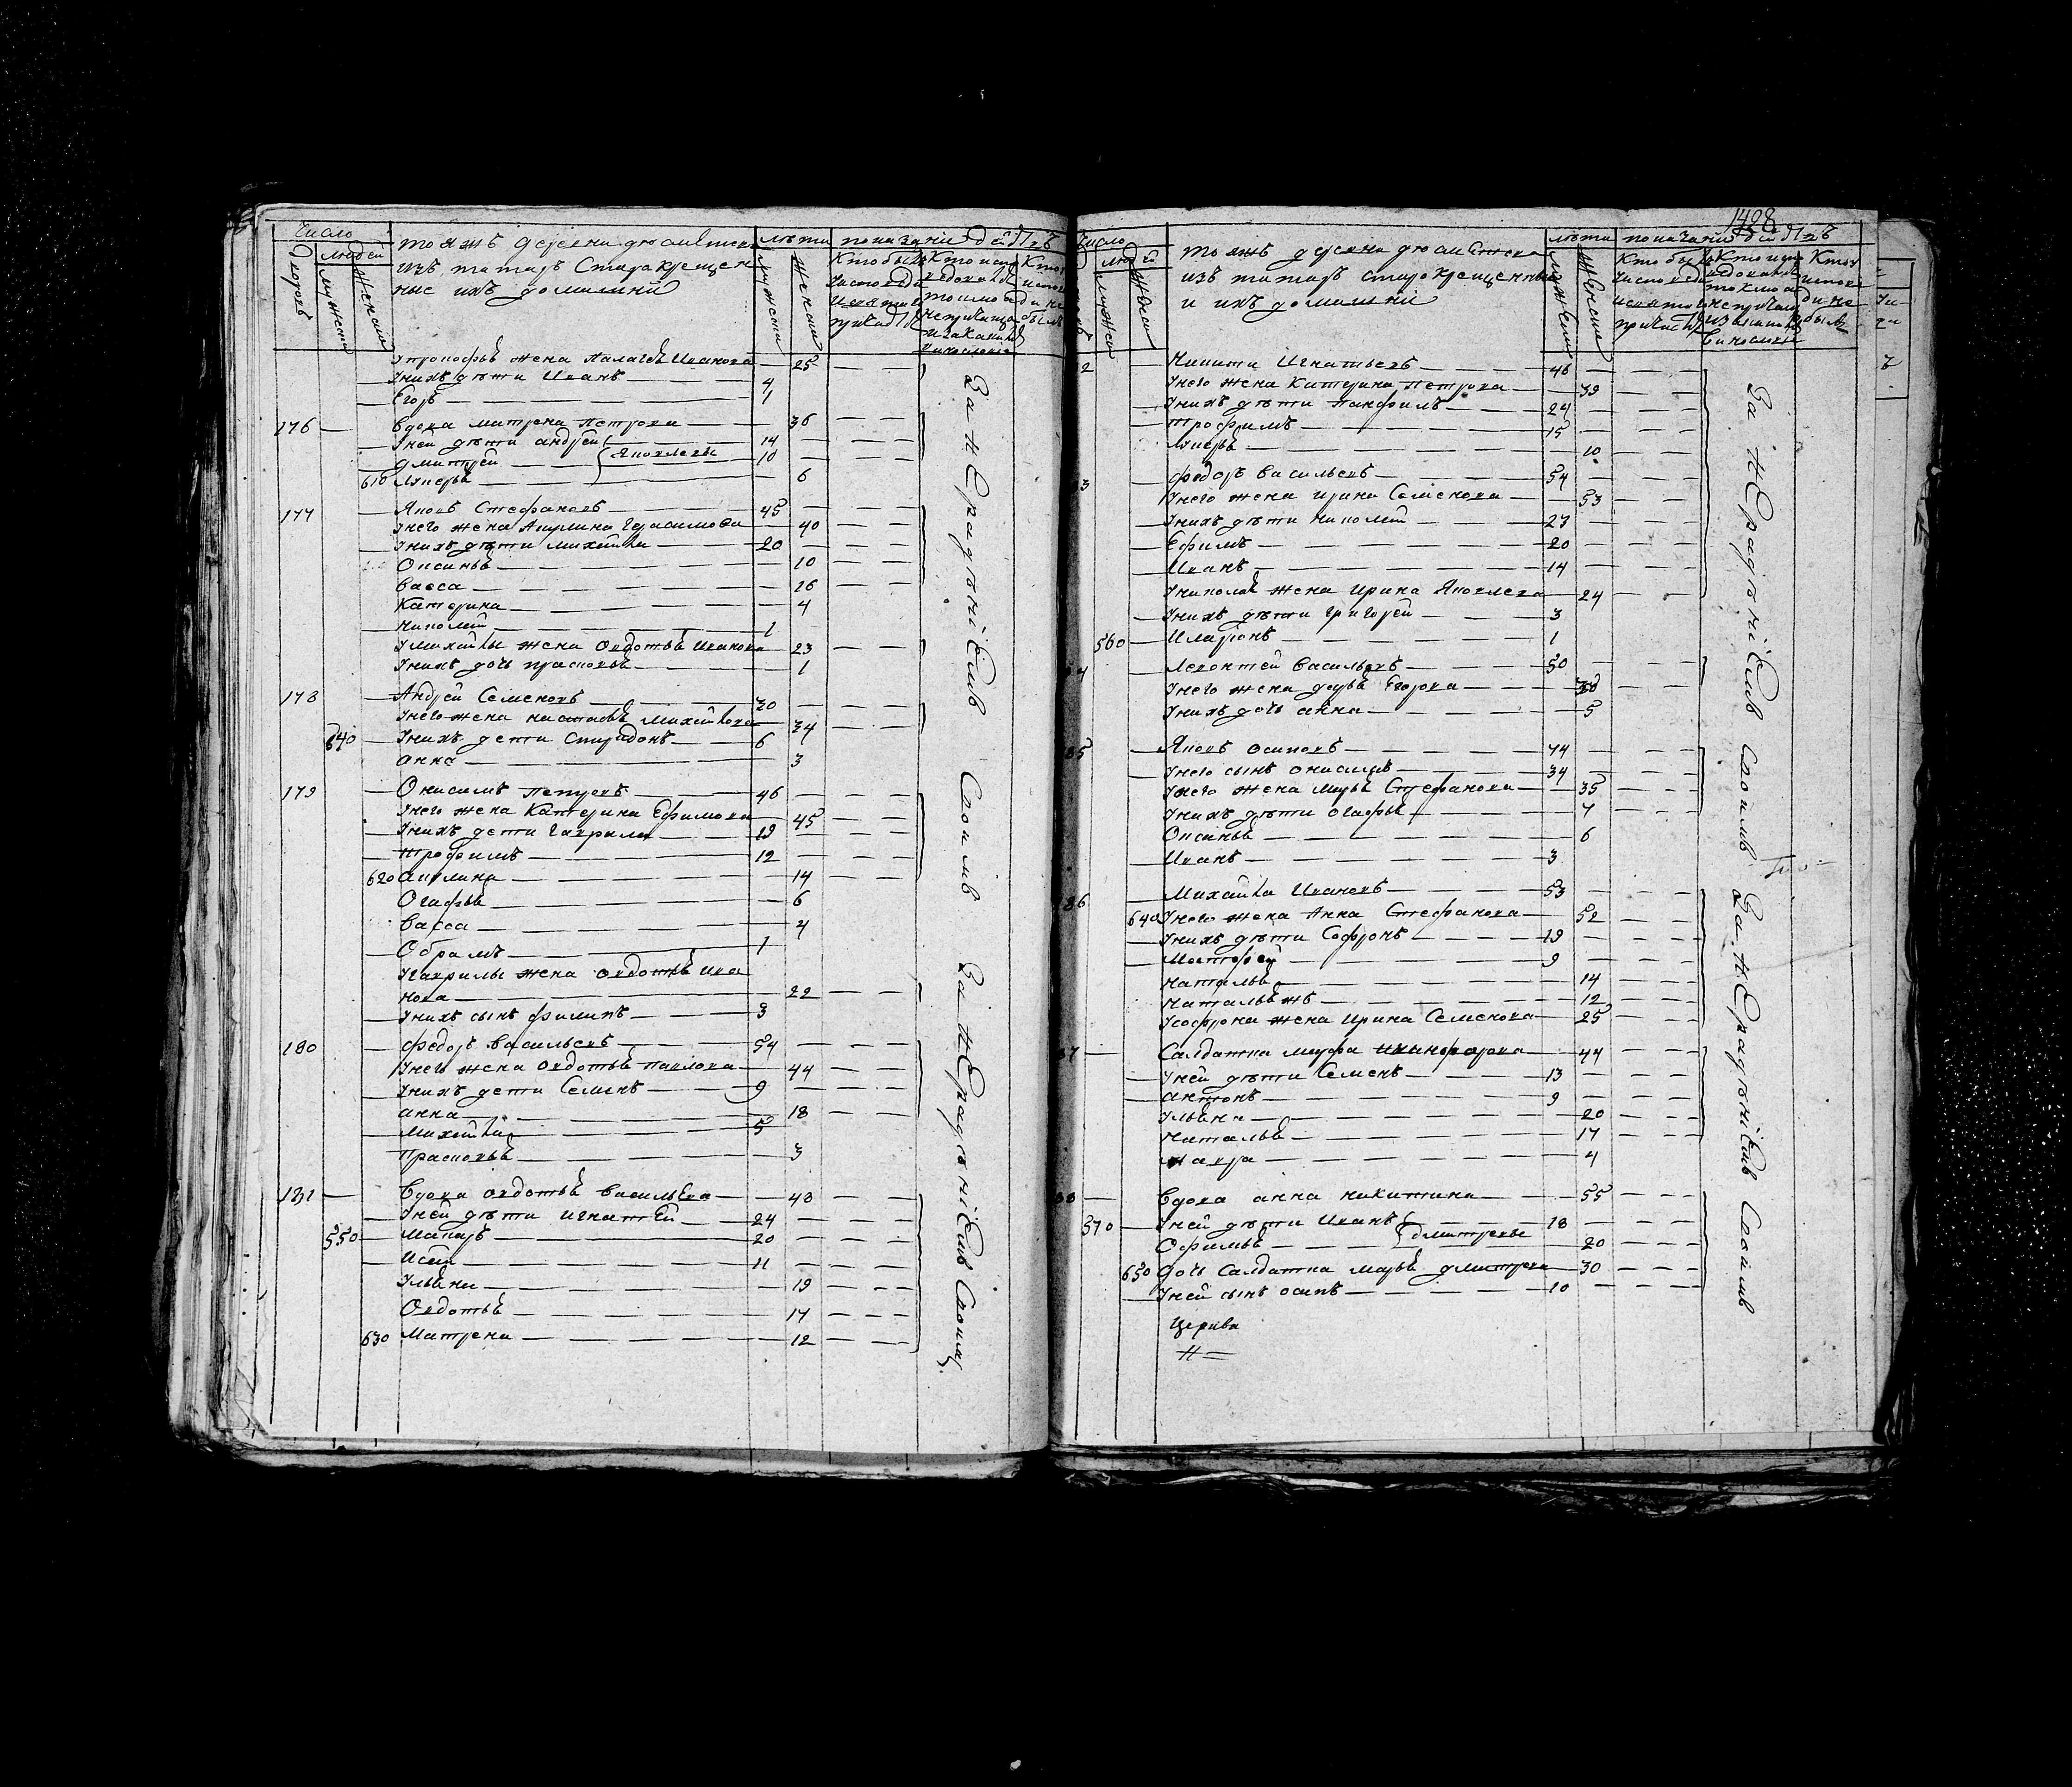 Число
людей
дворовъ
мужеска
женска
тояжъ деревни дюсметева
изъ татаръ Старокрещен
ные ихъ домашнiи
лѣта
мужеска
женска
показанiе дѣйствъ
176 Упрокофья жена Палагѣя Иванова 25
Унихъ дѣти Иванъ 4
Егоръ 1
176 вдова матрена Петрова 36
Уней дѣти андрей 14
дмитрей Яковлевы 10
610 Лукерья 6
177 Яковъ Стефановъ 45
Унего жена Акулина Герасимова 40
Унихъ дѣти михайла 20
Оксинья 10
васса 16
Катерина 4
Николай 1
Умихайлы жена Овдотья Иванова 23
Унихъ дочь прасковья 1
178 Андрей Семеновъ 30
Унего жена настасья Михайлова 34
540 Унихъ дети Спиридонъ 6
анна 3
179 Онисимъ Петровъ 46
Унего жена Катерина Ефимова 45
Унихъ дети Гаврила 19
трофимъ 12
620 Акулина 14
Огафья 6
васса 4
Обрамъ 1
Угаврилы жена овдотья ива
нова 22
Унихъ сынъ филипъ 3
180 федоръ васильевъ 54
Унего жена овдотья павлова 44
Унихъ дети Семенъ 9
анна 18
михайла 5
Прасковья 3
181 вдова овдотья васильева 48
Уней дѣти игнатей 24
550 Макаръ 20
Исай 11
Ульяна 19
Овдотья 17
630 Матрена 12
За нерадѣнiемъ своимъ За нерадѣнiемъ своимъ
1408
Число
тояжъ деревни дюсметева
изъ татаръ старокрещенные
и ихъ домашнiи
лѣта
мужеска
женска
показанiе дѣйствъ
2 Никита Игнатьевъ 46
Унего жена Катерина петрова 39
Унихъ дѣти панфилъ 24
трофимъ 15
Лукерья 10
3 федоръ васильевъ 54
Унего жена ирина Семенова 53
Унихъ дѣти николай 23
Ефимъ 20
Иванъ 14
Униколая жена ирина Яковлева 24
Унихъ дѣти григорей 3
560 Иларiонъ 1
4 Левонтей васильевъ 50
Унего жена дарья Егорова
Унихъ дочь анна 5
85 Яковъ осиповъ 74
Унего сынъ онисимъ 34
Унего жена марья Стефанова 35
Унихъ дѣти огафья 7
Оксинья 6
Иванъ 3
86 Михайла Ивановъ 53
640 Унего жена Анна Стефанова 52
Унихъ дѣти Софронъ 19
Матфей 9
наталья 14
наталья жъ 12
Усофрона жена Ирина Семенова 25
87 Салдатка марфа никифорова 44
Уней дѣти Семенъ 13
антонъ 9
Ульяна 20
наталья 17
мавра 4
88 вдова анна никитина 55
570 Уней дѣти Иванъ 18
Офимья дмитревы 20
650 дочь Салдатка марья дмитрева 30
Уней сынъ осипъ 10
За нерадѣнiемъ своимъ За нерадѣнiемъ своимъ
Церкви